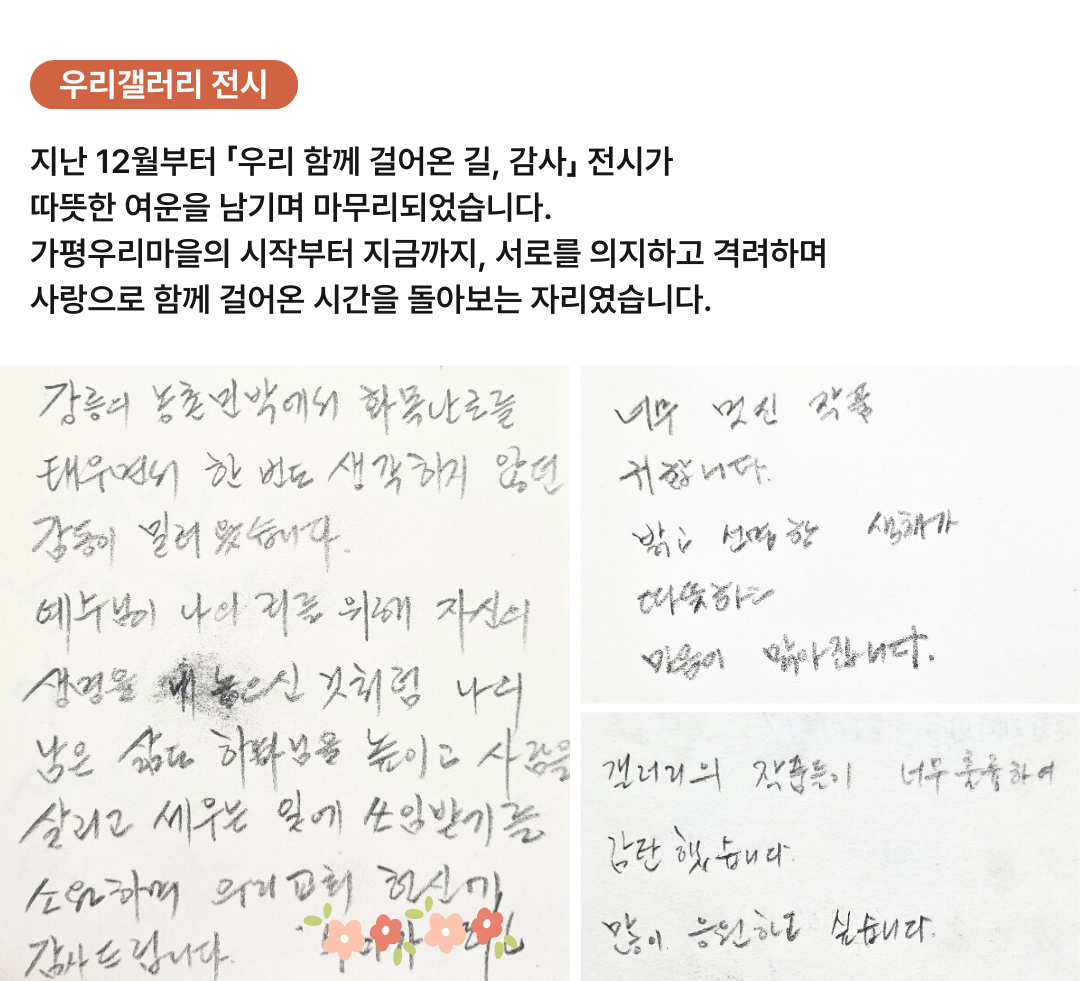 우리갤러리 전시
지난 12월부터 「우리 함께 걸어온 길, 감사」 전시가
따뜻한 여운을 남기며 마무리되었습니다.
가평우리마을의 시작부터 지금까지, 서로를 의지하고 격려하며
사랑으로 함께 걸어온 시간을 돌아보는 자리였습니다.
강릉의 농촌민박에서 화목난로를
태우면서 한 번도 생각하지 않던
감동이 밀려 왔습니다.
예수님이 나의 죄를 위해 자신의
생명을 내 놓으신 것처럼 나의
남은 삶도 하나님을 높이고 사람을
살리고 세우는 일에 쓰임받기를
소원하며 우리교회 헌신에
감사드립니다.
너무 멋진 작품
귀합니다.
밝고 선명한 색채가
따뜻하고
마음이 맑아집니다.
갤러리의 작품들이 너무 훌륭하여
감탄했습니다.
많이 응원하고 싶습니다.